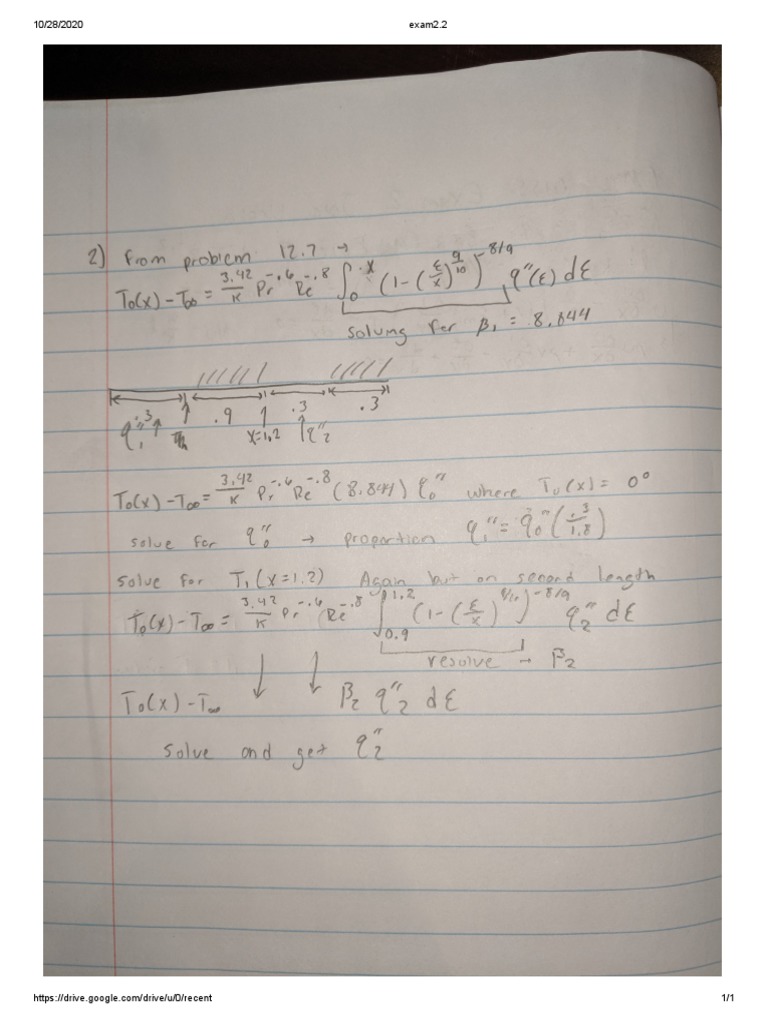 10/28/2020 exam2.2
2) from problem 12.7 →
T₀(x) - T∞ = 3.42/k Pr^-.6 Re^-.8 ∫₀^x (1-(ε/x)^9/10)^-8/9 q"(ε) dε
solving for β₁ = 8.844
.3 .9 .3 .3
q₁" x=1.2 q"₂
T₀(x) - T∞ = 3.42/k Pr^-.6 Re^-.8 (8.844) q₀" where T₀(x) = 0°
solve for q"₀ → proportion q₁" = q₀" (.3/1.8)
solve for T₁(x=1.2) Again but on second length
T₀(x) - T∞ = 3.42/k Pr^-.6 Re^-.8 ∫0.9^1.2 (1-(ε/x)^9/10)^-8/9 q₂" dε
resolve → β₂
T₀(x) - T∞ ↓ ↓ β₂ q"₂ dε
solve and get q"₂
https://drive.google.com/drive/u/0/recent 1/1